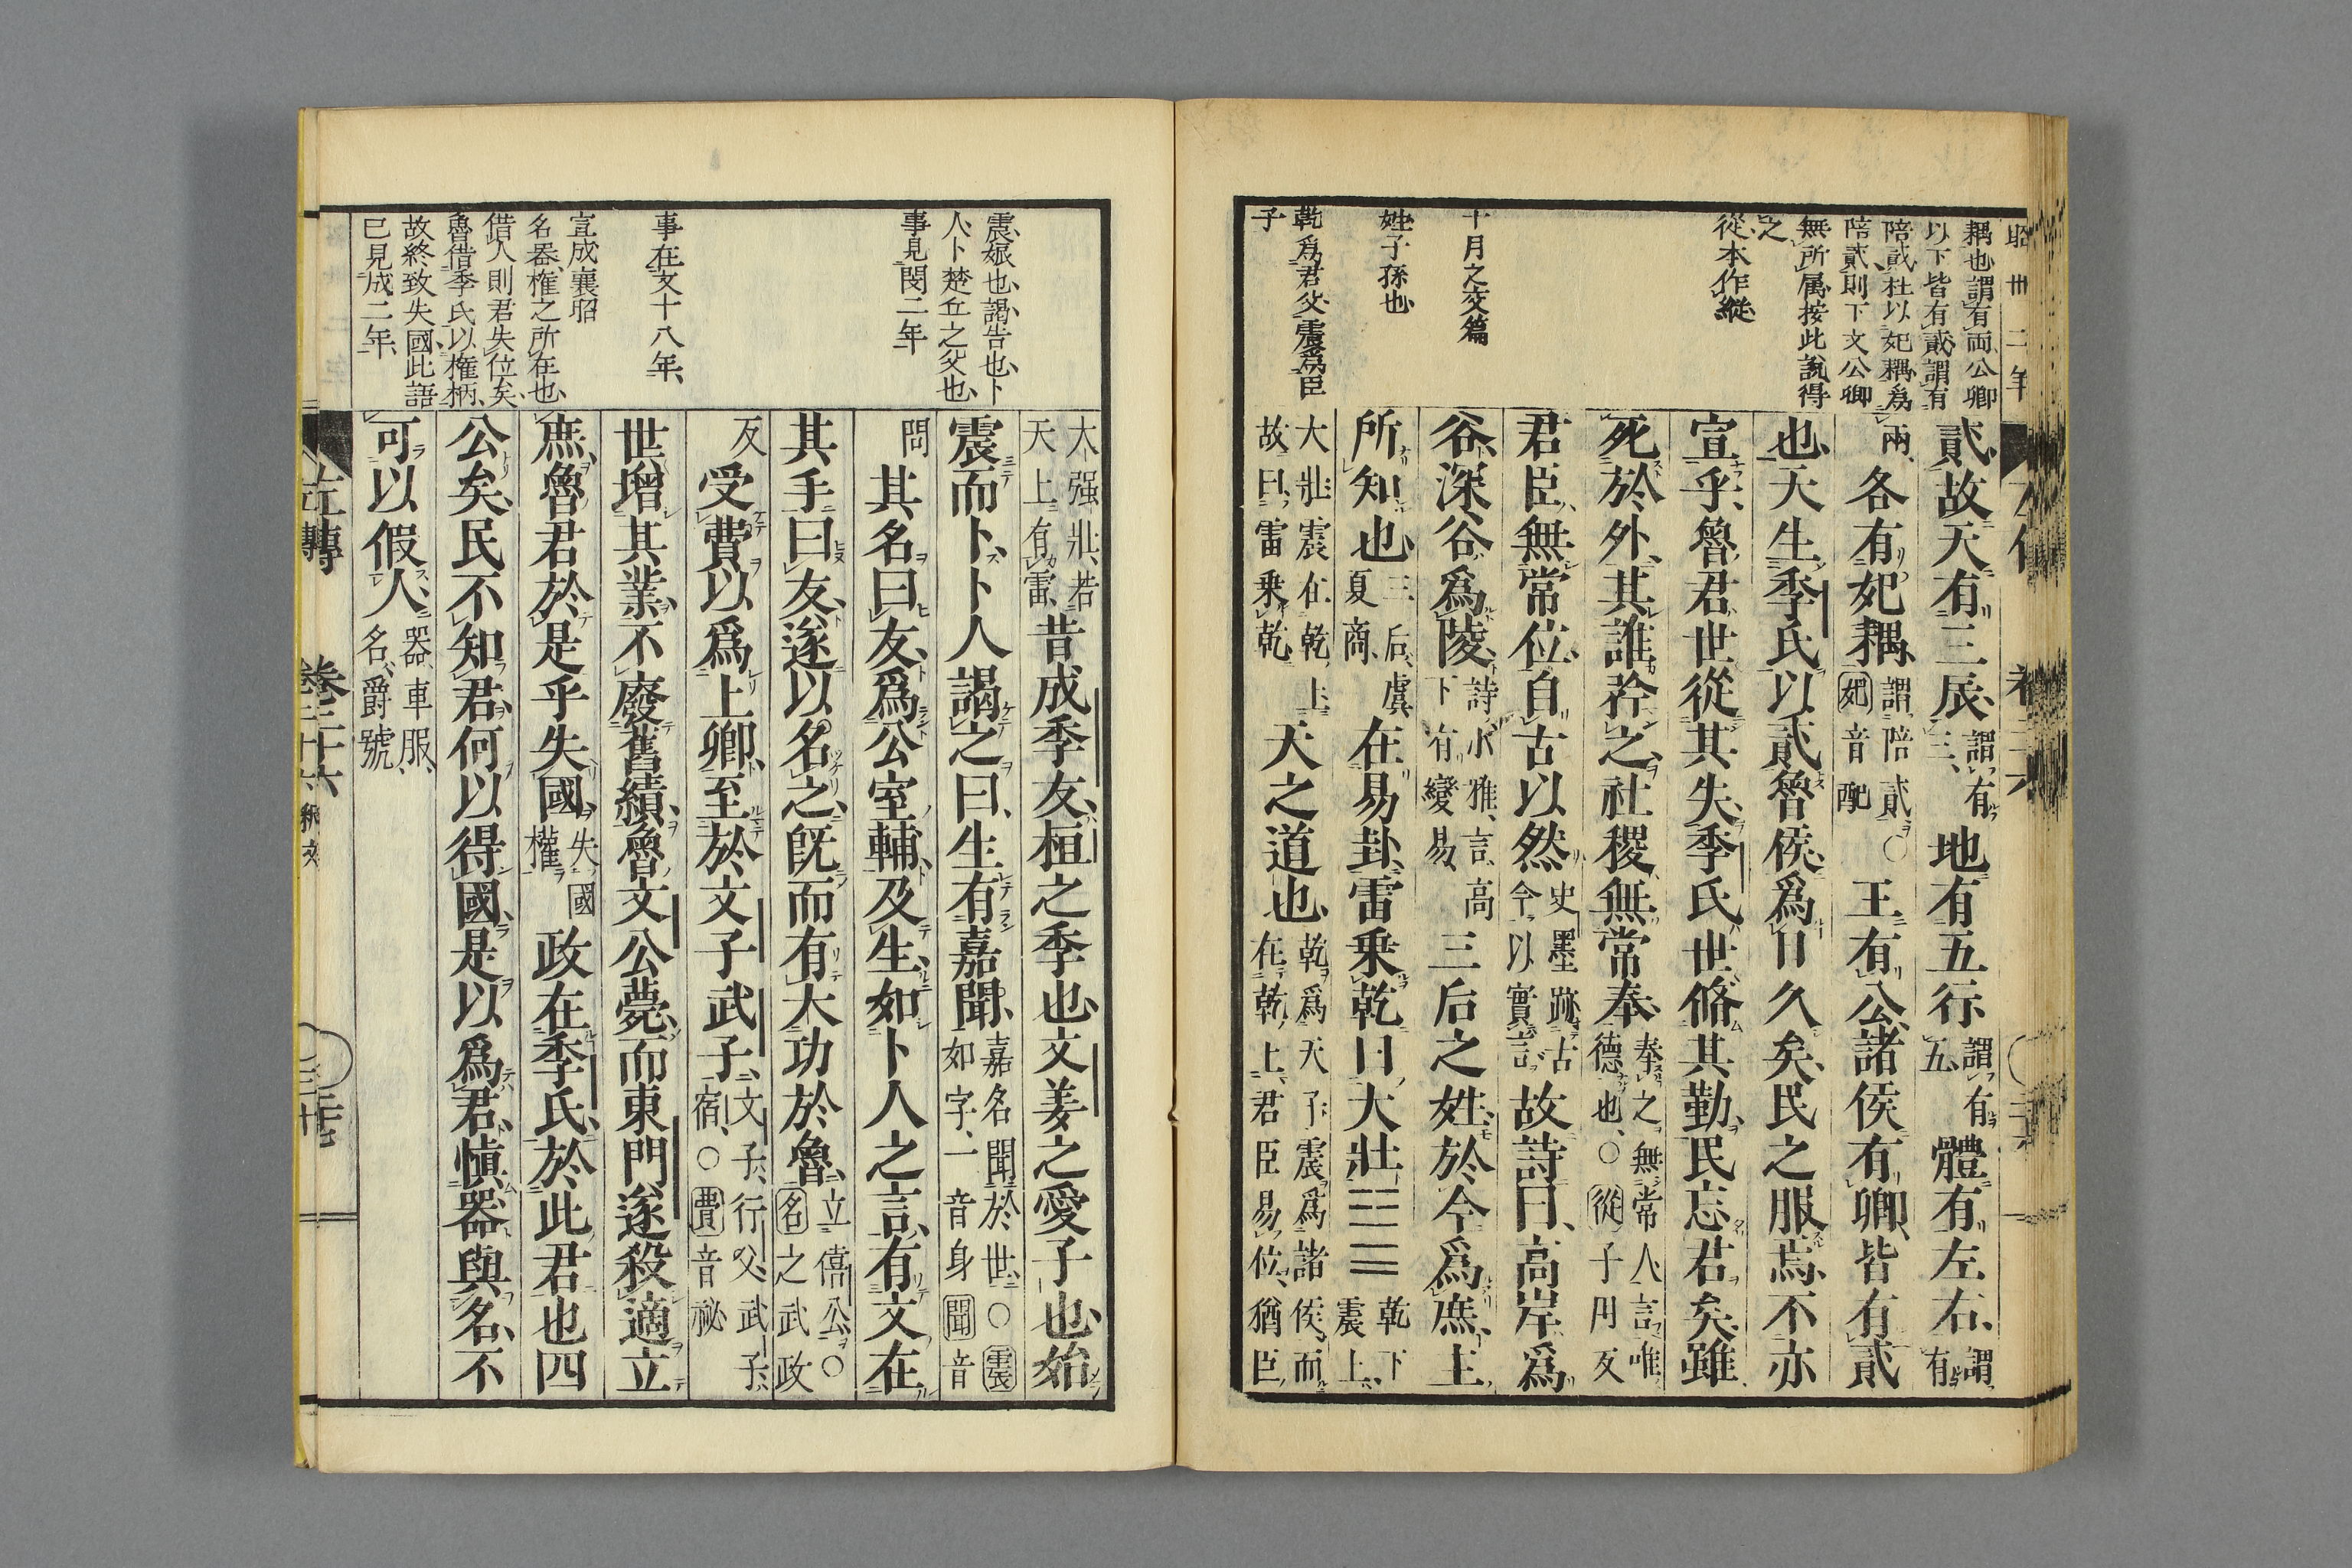 昭卅二年
耦也謂有両公卿
以下皆有貳謂有
陪貳杜以妃耦爲
陪貳則下文公卿
無所属按此説得
之
從本作縱
十月之交篇
姓子孫也
乾爲君父震爲臣
子
貳故天有三辰謂有三地有五行謂有五體有左右謂有
兩各有妃耦謂陪貳妃音配○王有公諸侯有卿皆有貳
也天生季氏以貳魯侯爲日久矣民之服焉不亦
宣乎魯君世從其失季氏世脩其勤民忘君矣雖
死於外其誰矜之社稷無常奉奉之無常人言唯德也○從子用反
君臣無常位自古以然史墨跡古今以實言故詩曰高岸爲
谷深谷爲陵詩小雅言高下有變易三后之姓於今爲庶主
所知也三后虞夏商在易卦雷乘乾曰大壯䷡乾下震上
大壯震在乾上故曰雷乘乾天之道也乾爲天子震爲諸侯而在乾上君臣易位猶臣
震娠也謁告也卜
人卜楚丘之父也
事見閔二年
事在文十八年
宣成襄昭
名器權之所在也
借人則君失位矣
魯借季氏以権柄
故終致失國此語
已見成二年
大强壯若天上有雷昔成季友桓之季也文姜之愛子也始
震而卜卜人謁之曰生有嘉聞嘉名聞於世○震如字一音身聞音
問其名曰友爲公室輔及生如卜人之言有文在
其手曰友遂以名之旣而有大功於魯立僖公○名之武政
反受費以爲上卿至於文子武子文子行父武子宿○費音祕
世增其業不廢舊績魯文公薨而東門遂殺適立
庶魯君於是乎失國失國權政在季氏於此君也四
公矣民不知君何以得國是以爲君愼器與名不
可以假人器車服名爵號
左傳 卷三十六 二十七